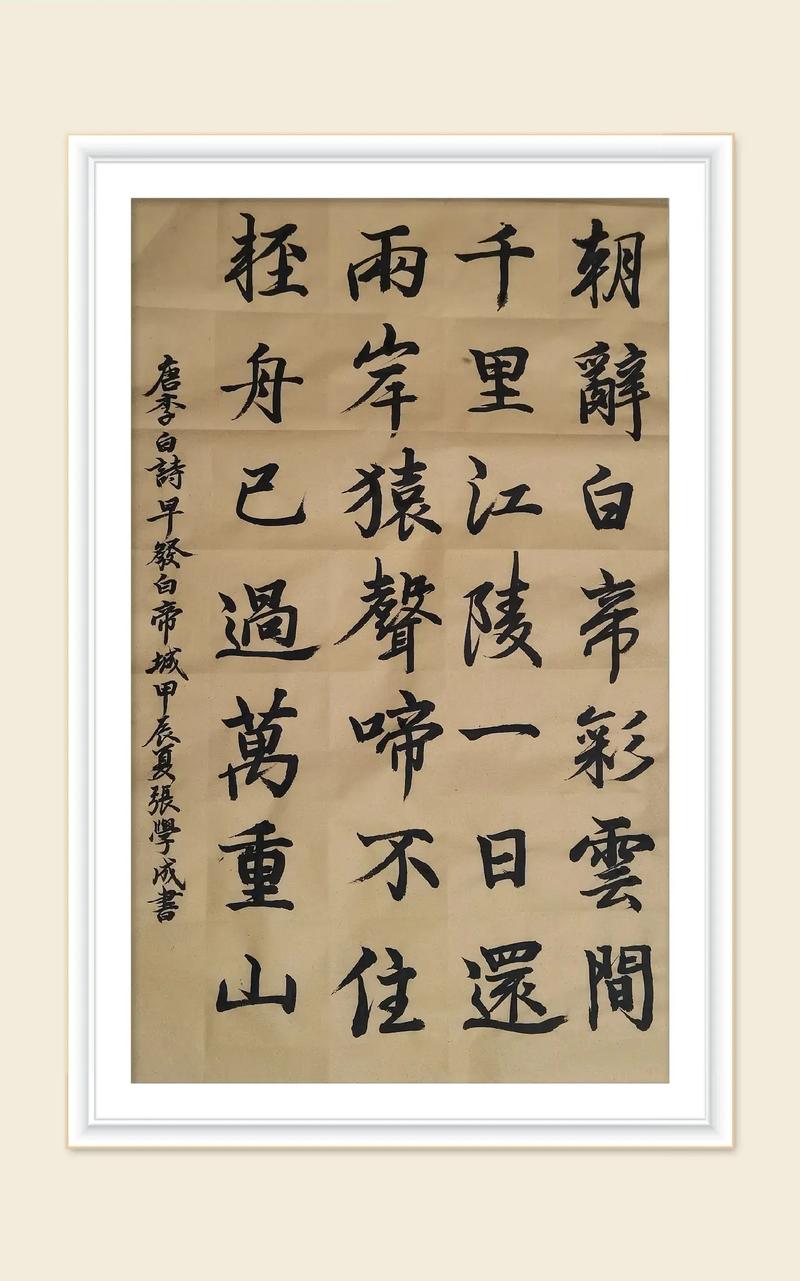 朝辭白帝彩雲間
千里江陵一日還
兩岸猿聲啼不住
輕舟已過萬重山
唐李白詩早發白帝城甲辰夏張學成書